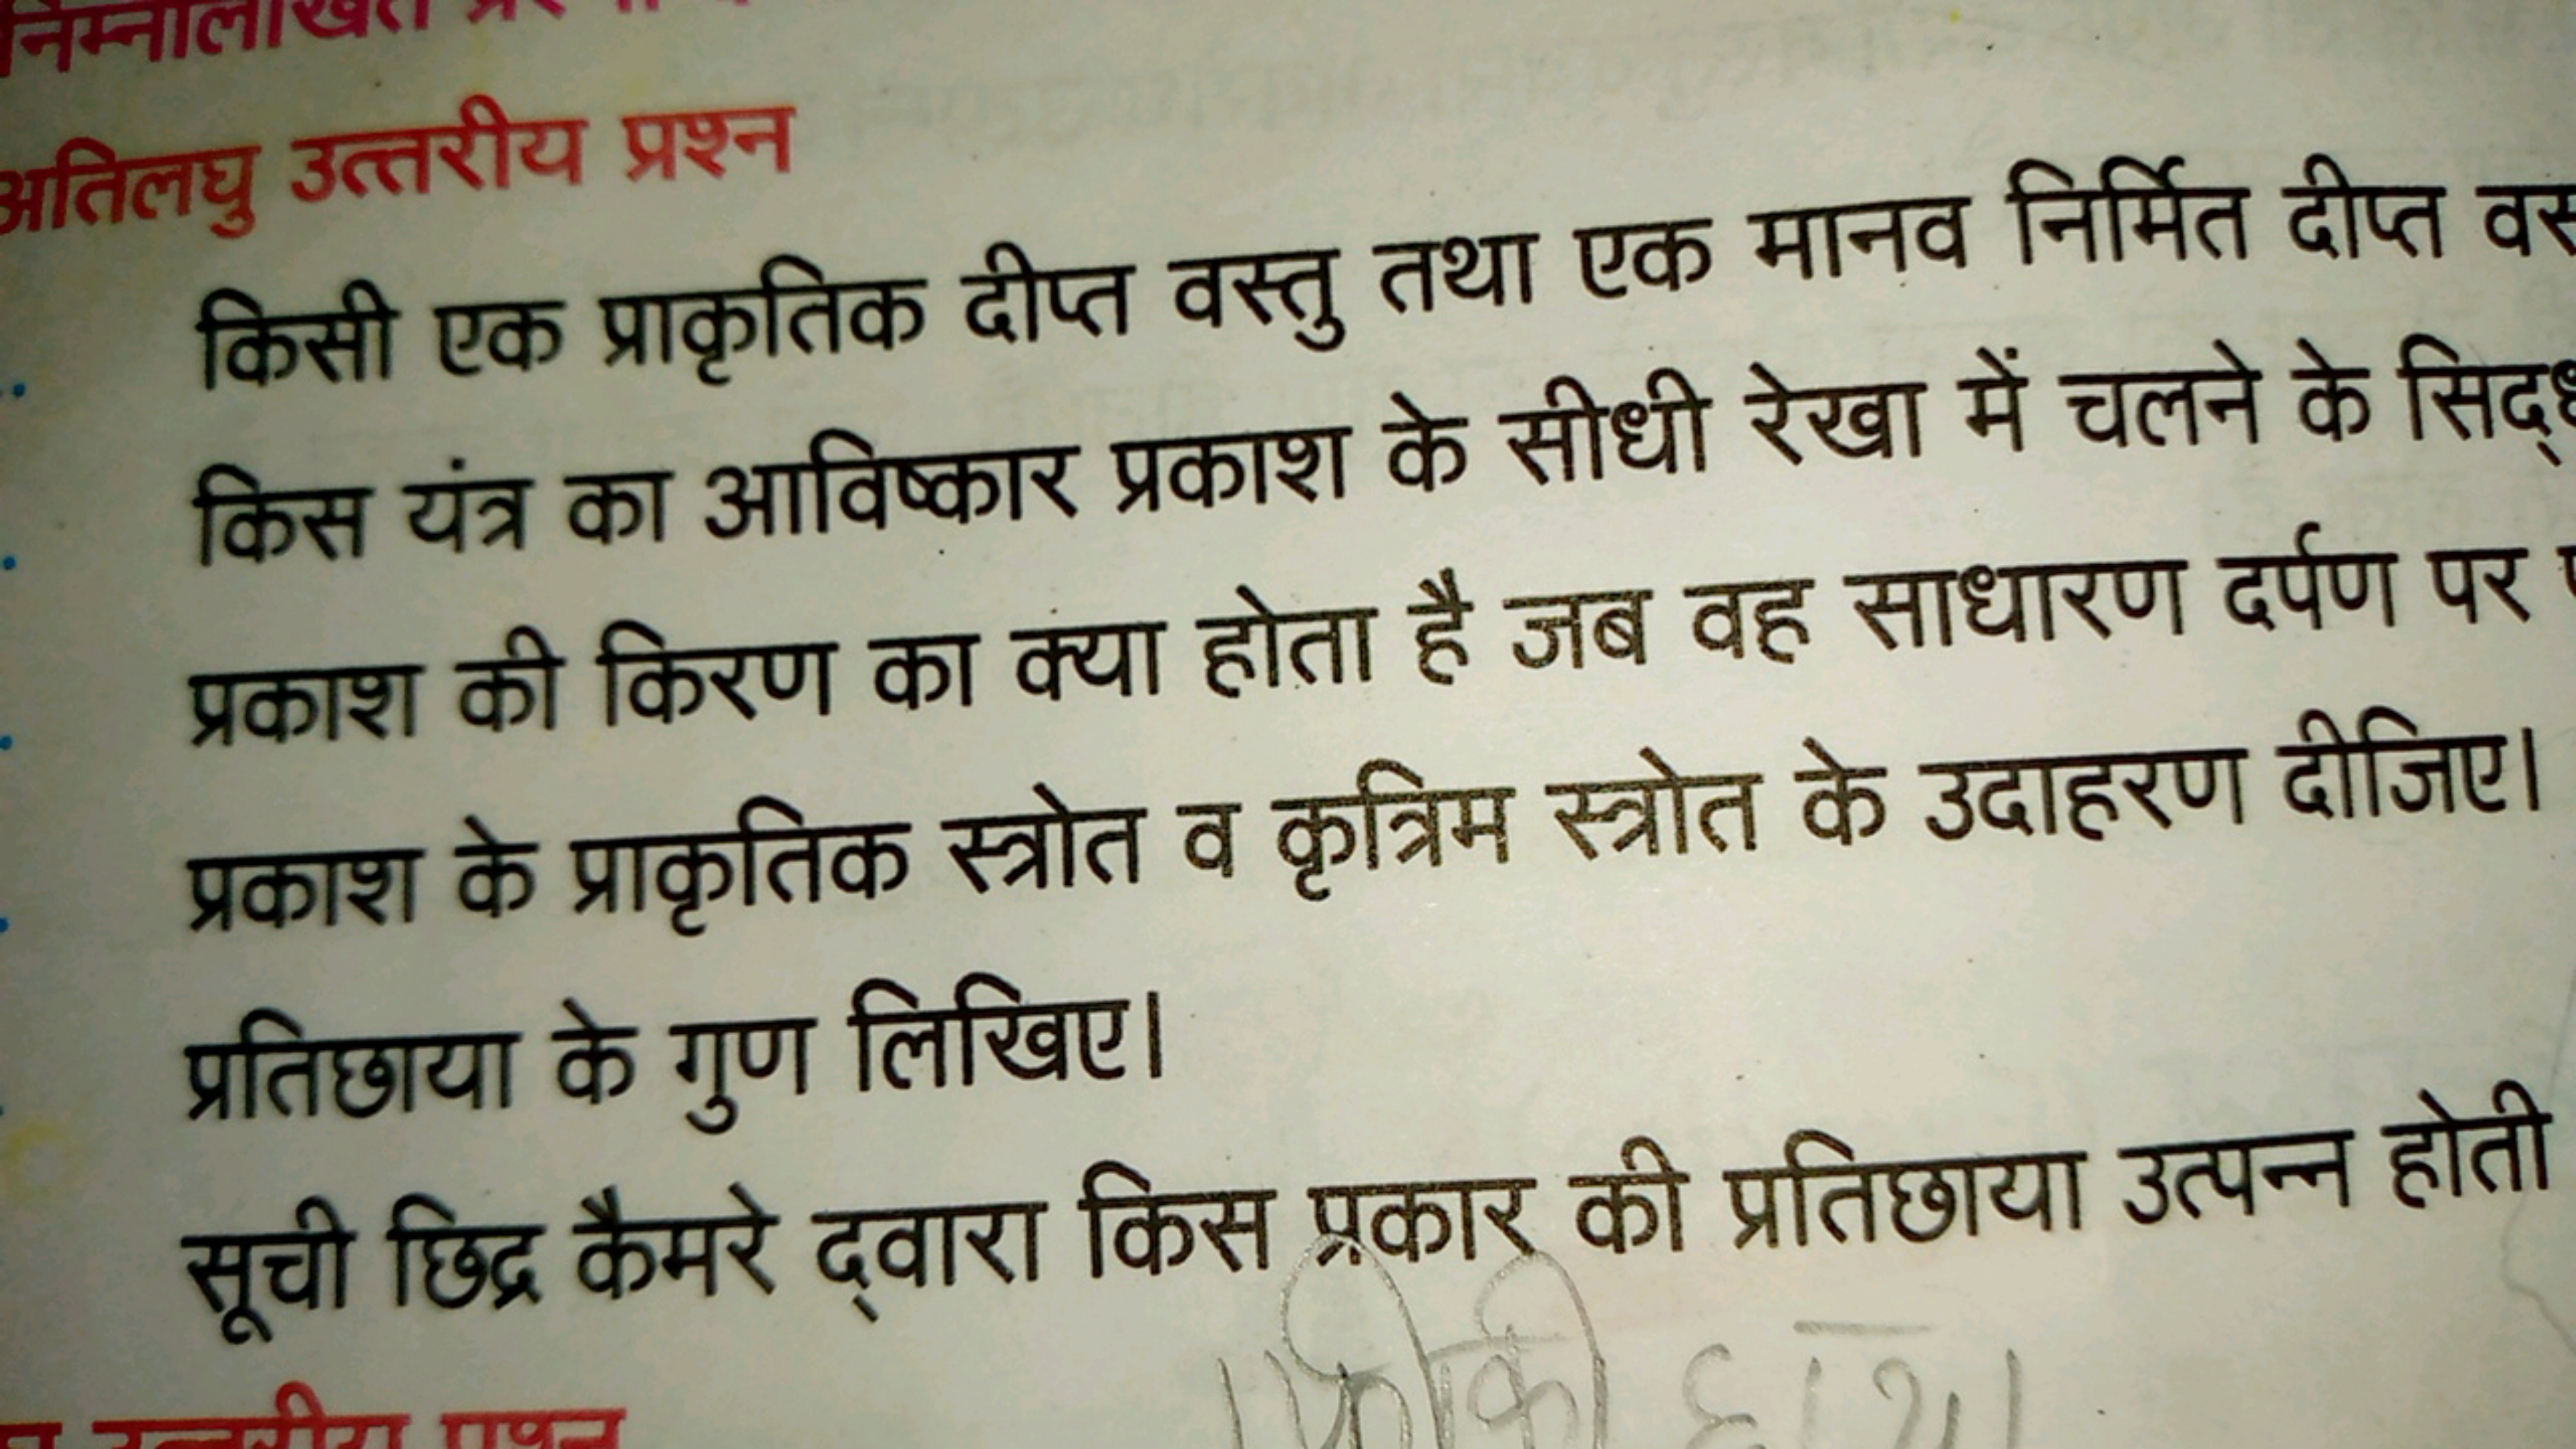 निम्नलिखित
अतिलघु उत्तरीय प्रश्न
किसी एक प्राकृतिक दीप्त वस्तु तथा एक मानव निर्मित दीप्त
किस यंत्र का आविष्कार प्रकाश के सीधी रेखा में चलने के
प्रकाश की किरण का क्या होता है जब वह साधारण दर्पण पर
प्रकाश के प्राकृतिक स्त्रोत व कृत्रिम स्त्रोत के उदाहरण दीजिए।
प्रतिछाया के गुण लिखिए।
सूची छिद्र कैमरे द्वारा किस प्रकार की प्रतिछाया उत्पन्न होती
उत्तरीय प्रश्न